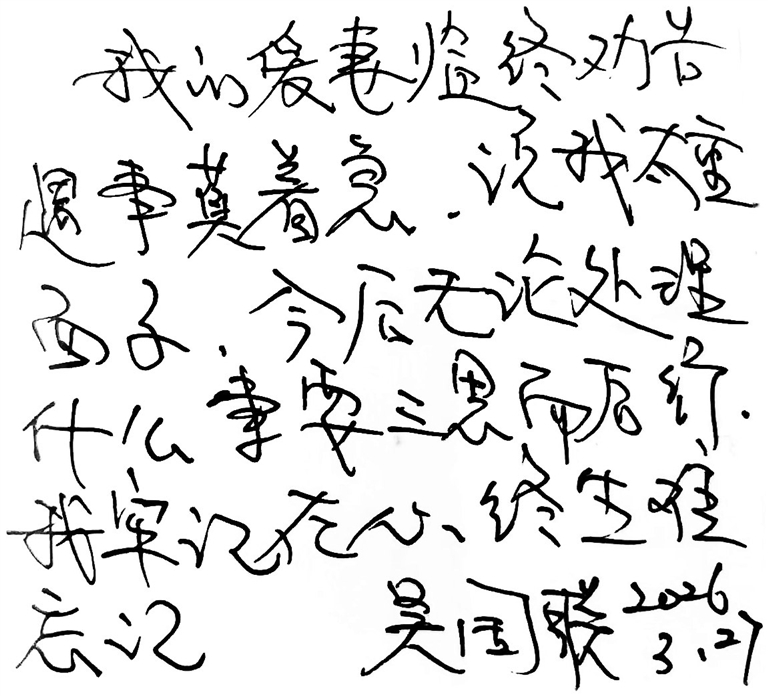 我的爱妻临终劝告
遇事莫着急.说我太重
面子.今后无论处理
什么事要三思而后行.
我牢记在心、终生难
忘记 吴国联 2026
3.27